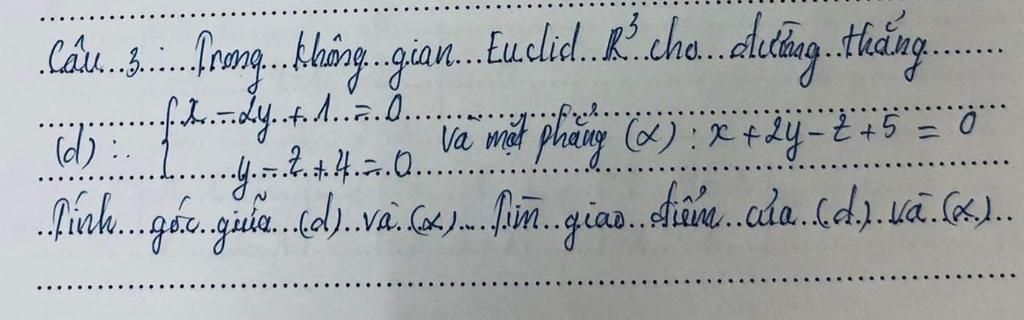 Câu 3: Trong không gian Euclid R³ cho đường thẳng
(d): { x - 2y + 1 = 0
y - z + 4 = 0 và mặt phẳng (α): x + 2y - z + 5 = 0
Tính góc giữa (d) và (α). Tìm giao điểm của (d) và (α).